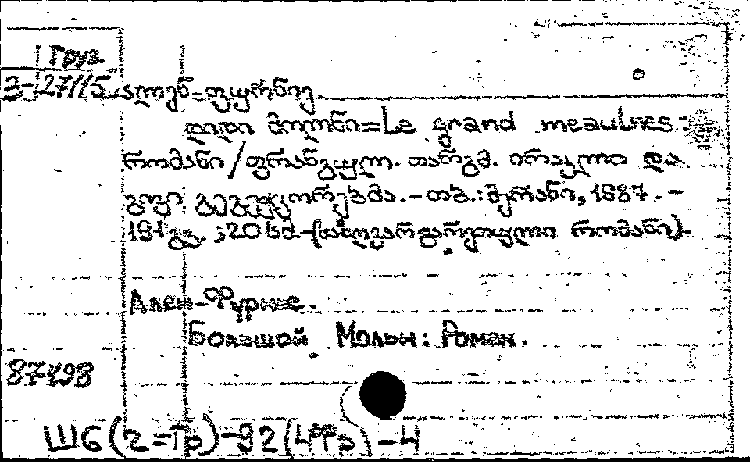 Груз.
3-27115 ალენ-ფურნიე.
დიდი მოლნი=Le grand meaulnes:
რომანი/ფრანგულ. თარგმ. ირაკლი და
გოგი გეგეჭკორებმა.-თბ.:მერანი, 1987.-
191გვ.;20სმ-(საზღვარგარეთული რომანი).
Ален-Фурнье.
Большой Мольн: Роман.
87498
Ш6(2=Гр)-92(4Фр)-4